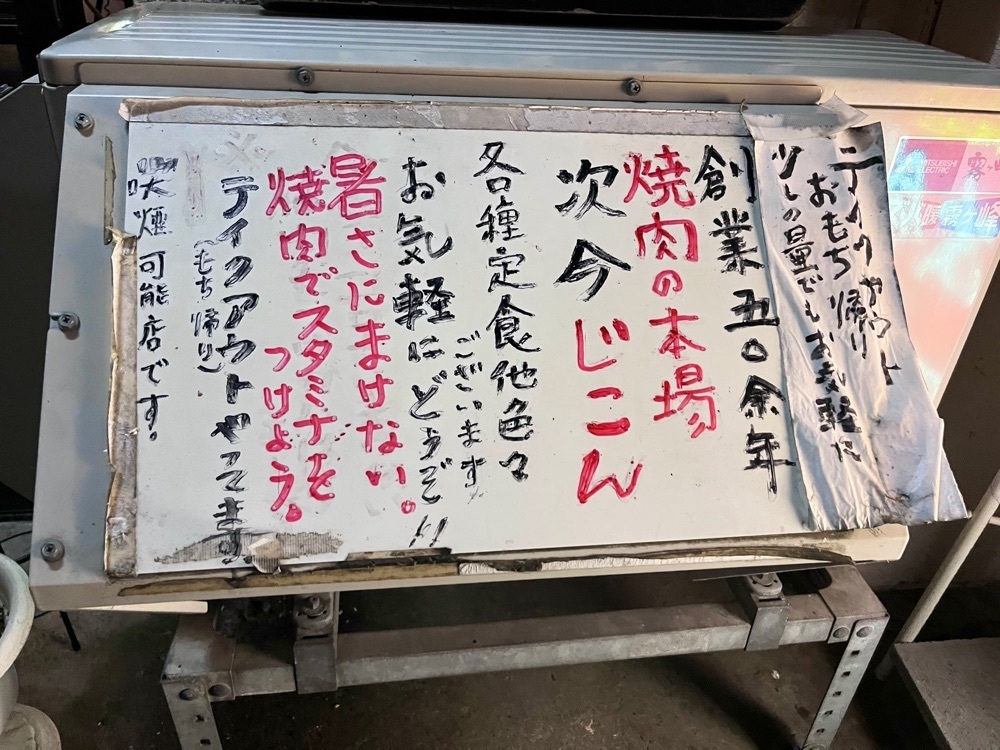 テイクアウト
おもち帰り
少しの量でもお気軽に
創業五〇余年
焼肉の本場
次今じこん
各種定食他色々
ございます
お気軽にどうぞ!!
暑さにまけない。
焼肉でスタミナを
つけよう。
テイクアウトやってます。
(もち帰り)
喫煙可能店です。
MITSUBISHI
ELECTRIC
霧ヶ峰